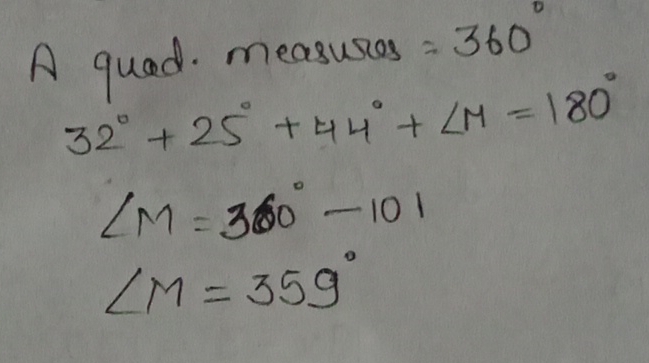 A quad. measures = 360°
32° + 25° + 44° + ∠M = 180°
∠M = 360° - 101
∠M = 359°